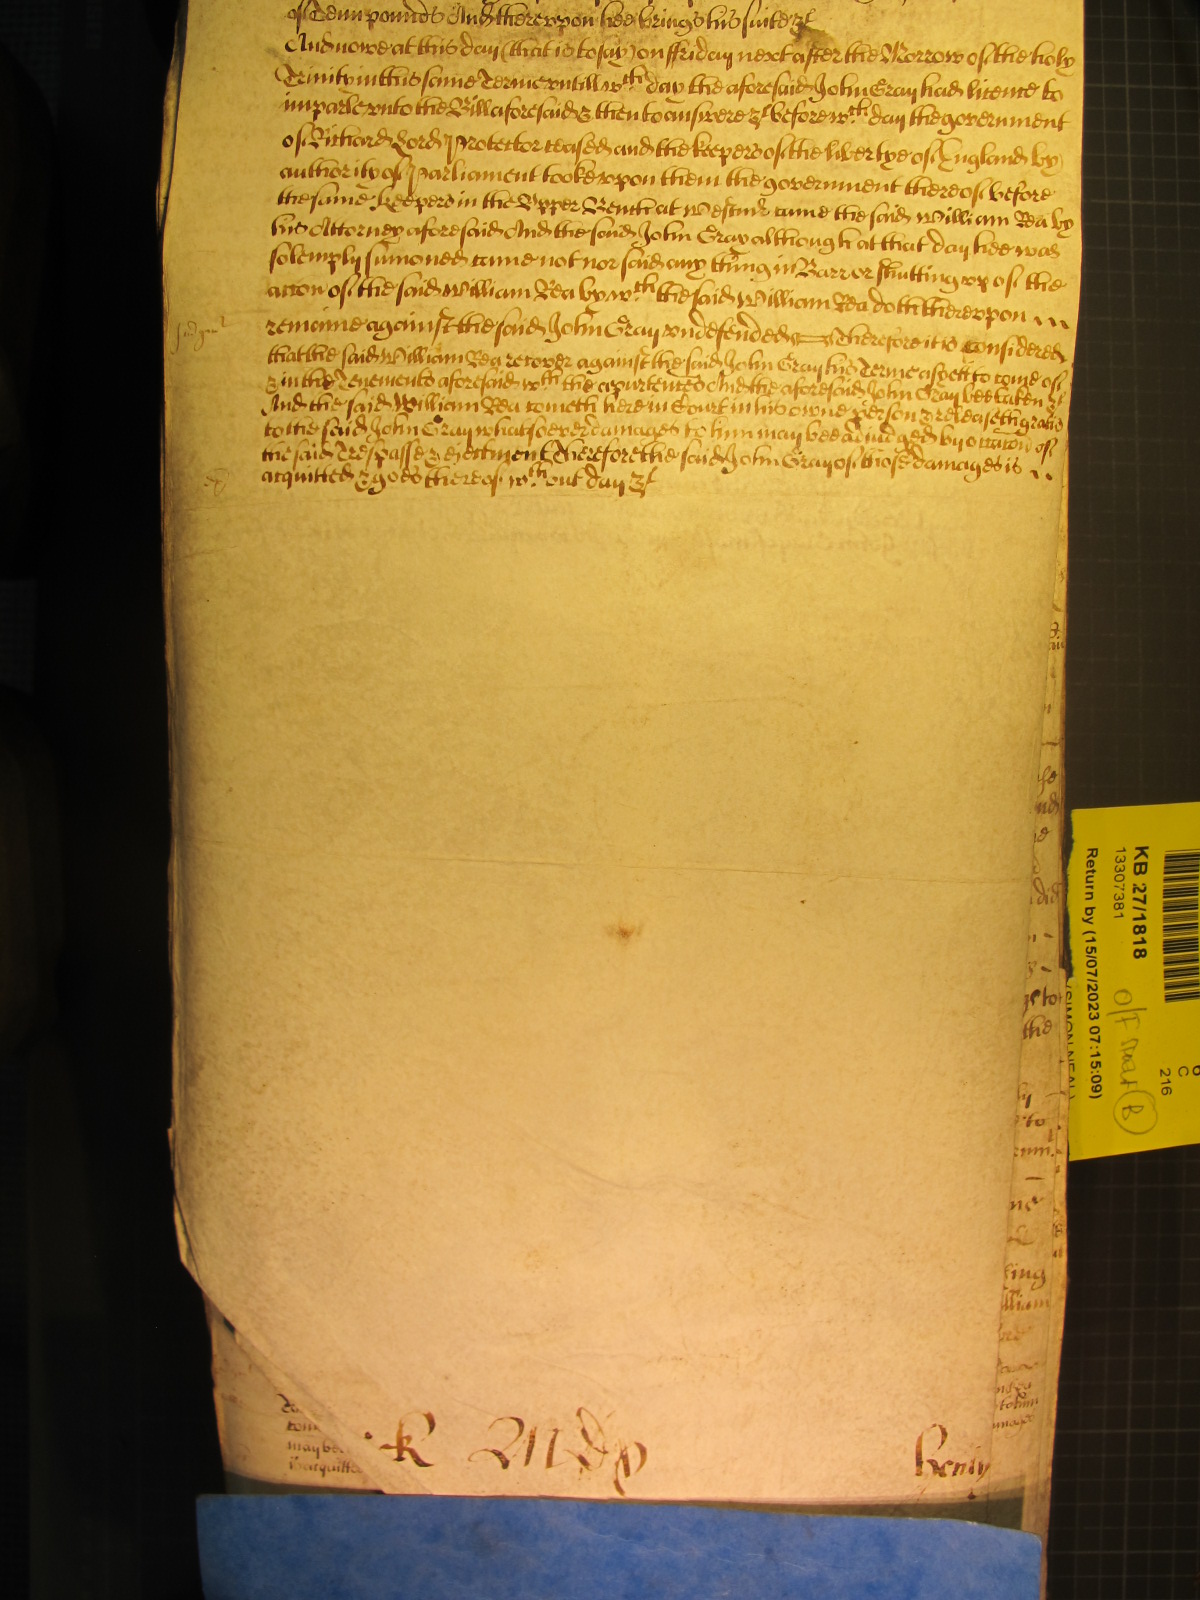 of Tenn pounds And thereuppon hee brings his suite &c
And nowe at this day (that is to say) on ffriday next after the Morrow of the holy
Trinity in this same Terme untill wch day the aforesaid John Gray had licence to
imparle unto the Bill aforesaid & then to answere &c before wch day the government
of Richard Lord Protector ceased and the keepers of the libertye of England by
authority of Parliament tooke uppon them the government thereof before
the same Keepers in the Upper Bench at Westmr came the said William Rea by
his Attorney aforesaid And the said John Gray although at that day hee was
solemply sumoned came not nor said any thing in Barr or shutting up of the
accon of the said William Rea by wch the said William Rea doth thereuppon
remaine against the said John Gray undefended Therefore it is Considered
that the said William Rea recover against the said John Gray his Terme as yett to come of
& in the Tenements aforesaid wth the appurtences And the aforesaid John Gray bee taken &c
And the said William Rea cometh here in Court in his owne person & releaseth gratis
to the said John Gray whatsoever damages to him may bee adiudged by occacon of
the said Trespasse & eiectment Therefore the said John Gray of those damages is
acquitted & goes thereof wthout day &c
Judgmt
may be
& acquitted
KB 27/1818
13307381
Return by (15/07/2023 07:15:09)
(SIMON NEAL)
C
216
B
ge to
the
to
ne
king
illiam